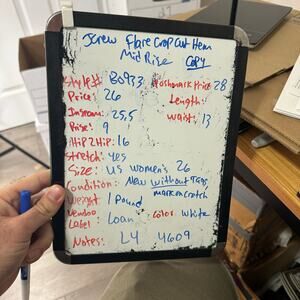 Jcrew Flare Crop Cut Hem
Mid Rise Copy
Style# B0933 Poshmark Price 28
Price: 26 Length:
Inseam: 25.5 Waist: 13
Rise: 9
Hip 2 Hip: 16
Stretch: yes
Size: US women's 26
Condition: New without Tags
mark on crotch
Weight 1 Pound
Vendoo Label Loan Color White
Notes: L4 4609